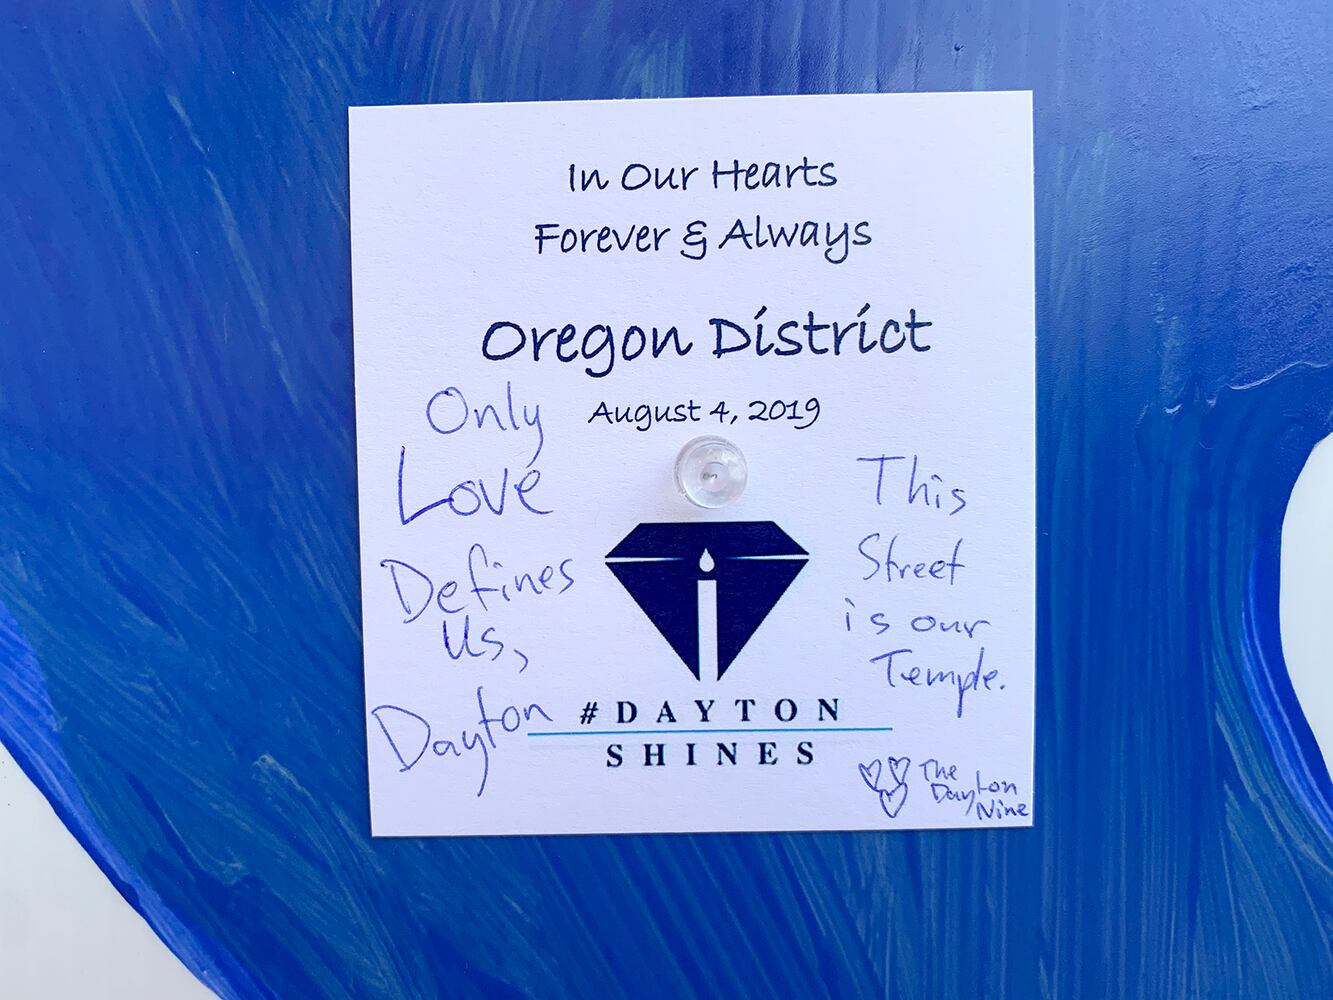 In Our Hearts
Forever & Always
Oregon District
August 4, 2019
Only
Love
Defines
Us,
Dayton
This
Street
is our
Temple.
#DAYTON
SHINES
The
Dayton
Nine